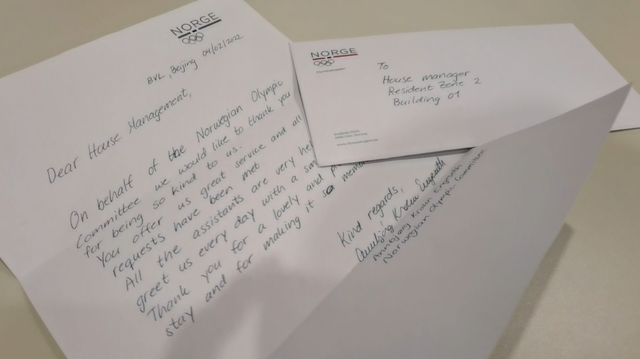 NORGE
BVL Beijing 04/02/2022
Dear House Management,
On behalf of the Norwegian Olympic
Committee we would like to thank you
for being so kind to us.
You offer us great service and all
requests have been met.
All the assistants are very
greet us every day with a
Thank you for a lovely and
stay and for making it so
Kind regards,
Norwegian Olympic Committee
NORGE
To
House manager
Resident Zone 2
Building 01